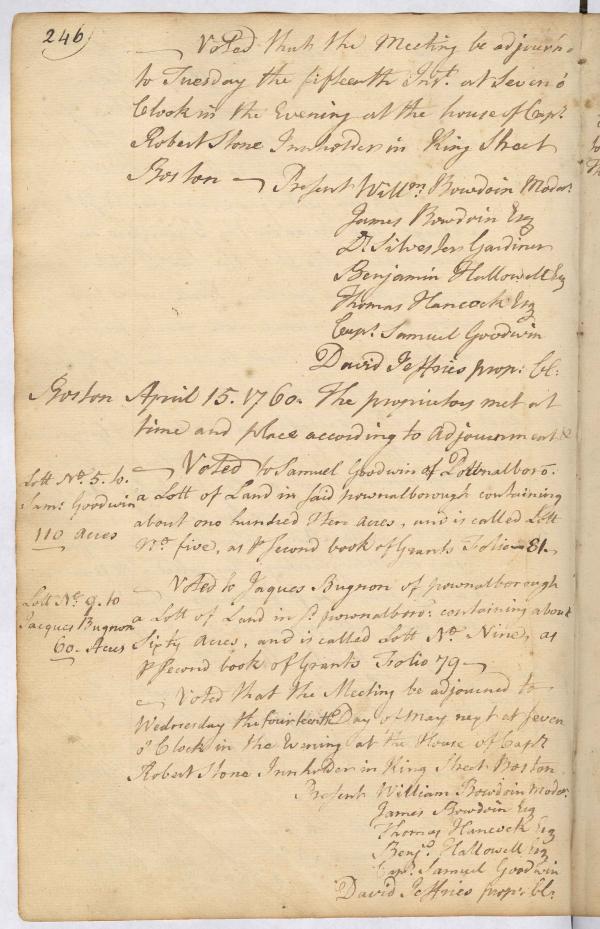 246)
— Voted that the Meeting be adjourn'd
to Tuesday the fifteenth Inst. at Seven o'
Clock in the Evening at the house of Capt.
Robert Stone Innholder in King Street
Boston — Present Willm. Bowdoin Moder.
James Bowdoin Esq
Dr. Silvester Gardiner
Benjamin Hallowell Esq
Thomas Hancock Esq
Capt. Samuel Goodwin
David Jeffries prop: Cl:
Boston April 15. 1760. The proprietors met at
time and place according to Adjournment &
Lott No. 5. to
Saml. Goodwin
110 Acres
— Voted to Samuel Goodwin of Pownalboro.
a Lott of Land in said pownalborough containing
about one hundred & ten Acres, and is called Lott
No. five, as P Second book of Grants Folio — 81.
Lott No. 9. to
Jacques Bugnon
60. Acres
— Voted to Jaques Bugnon of pownalborough
a Lott of Land in sd. pownalboro: containing about
Sixty Acres, and is called Lott No. Nine, as
P Second book of Grants Folio 79 —
— Voted that the Meeting be adjourned to
Wednesday the fourteenth Day of May next at Seven
o' Clock in the Evening at the House of Capt.
Robert Stone Innholder in King Street Boston
Present William Bowdoin Moder.
James Bowdoin Esq
Thomas Hancock Esq
Benja. Hallowell Esq
Capt. Samuel Goodwin
David Jeffries prop: Cl: